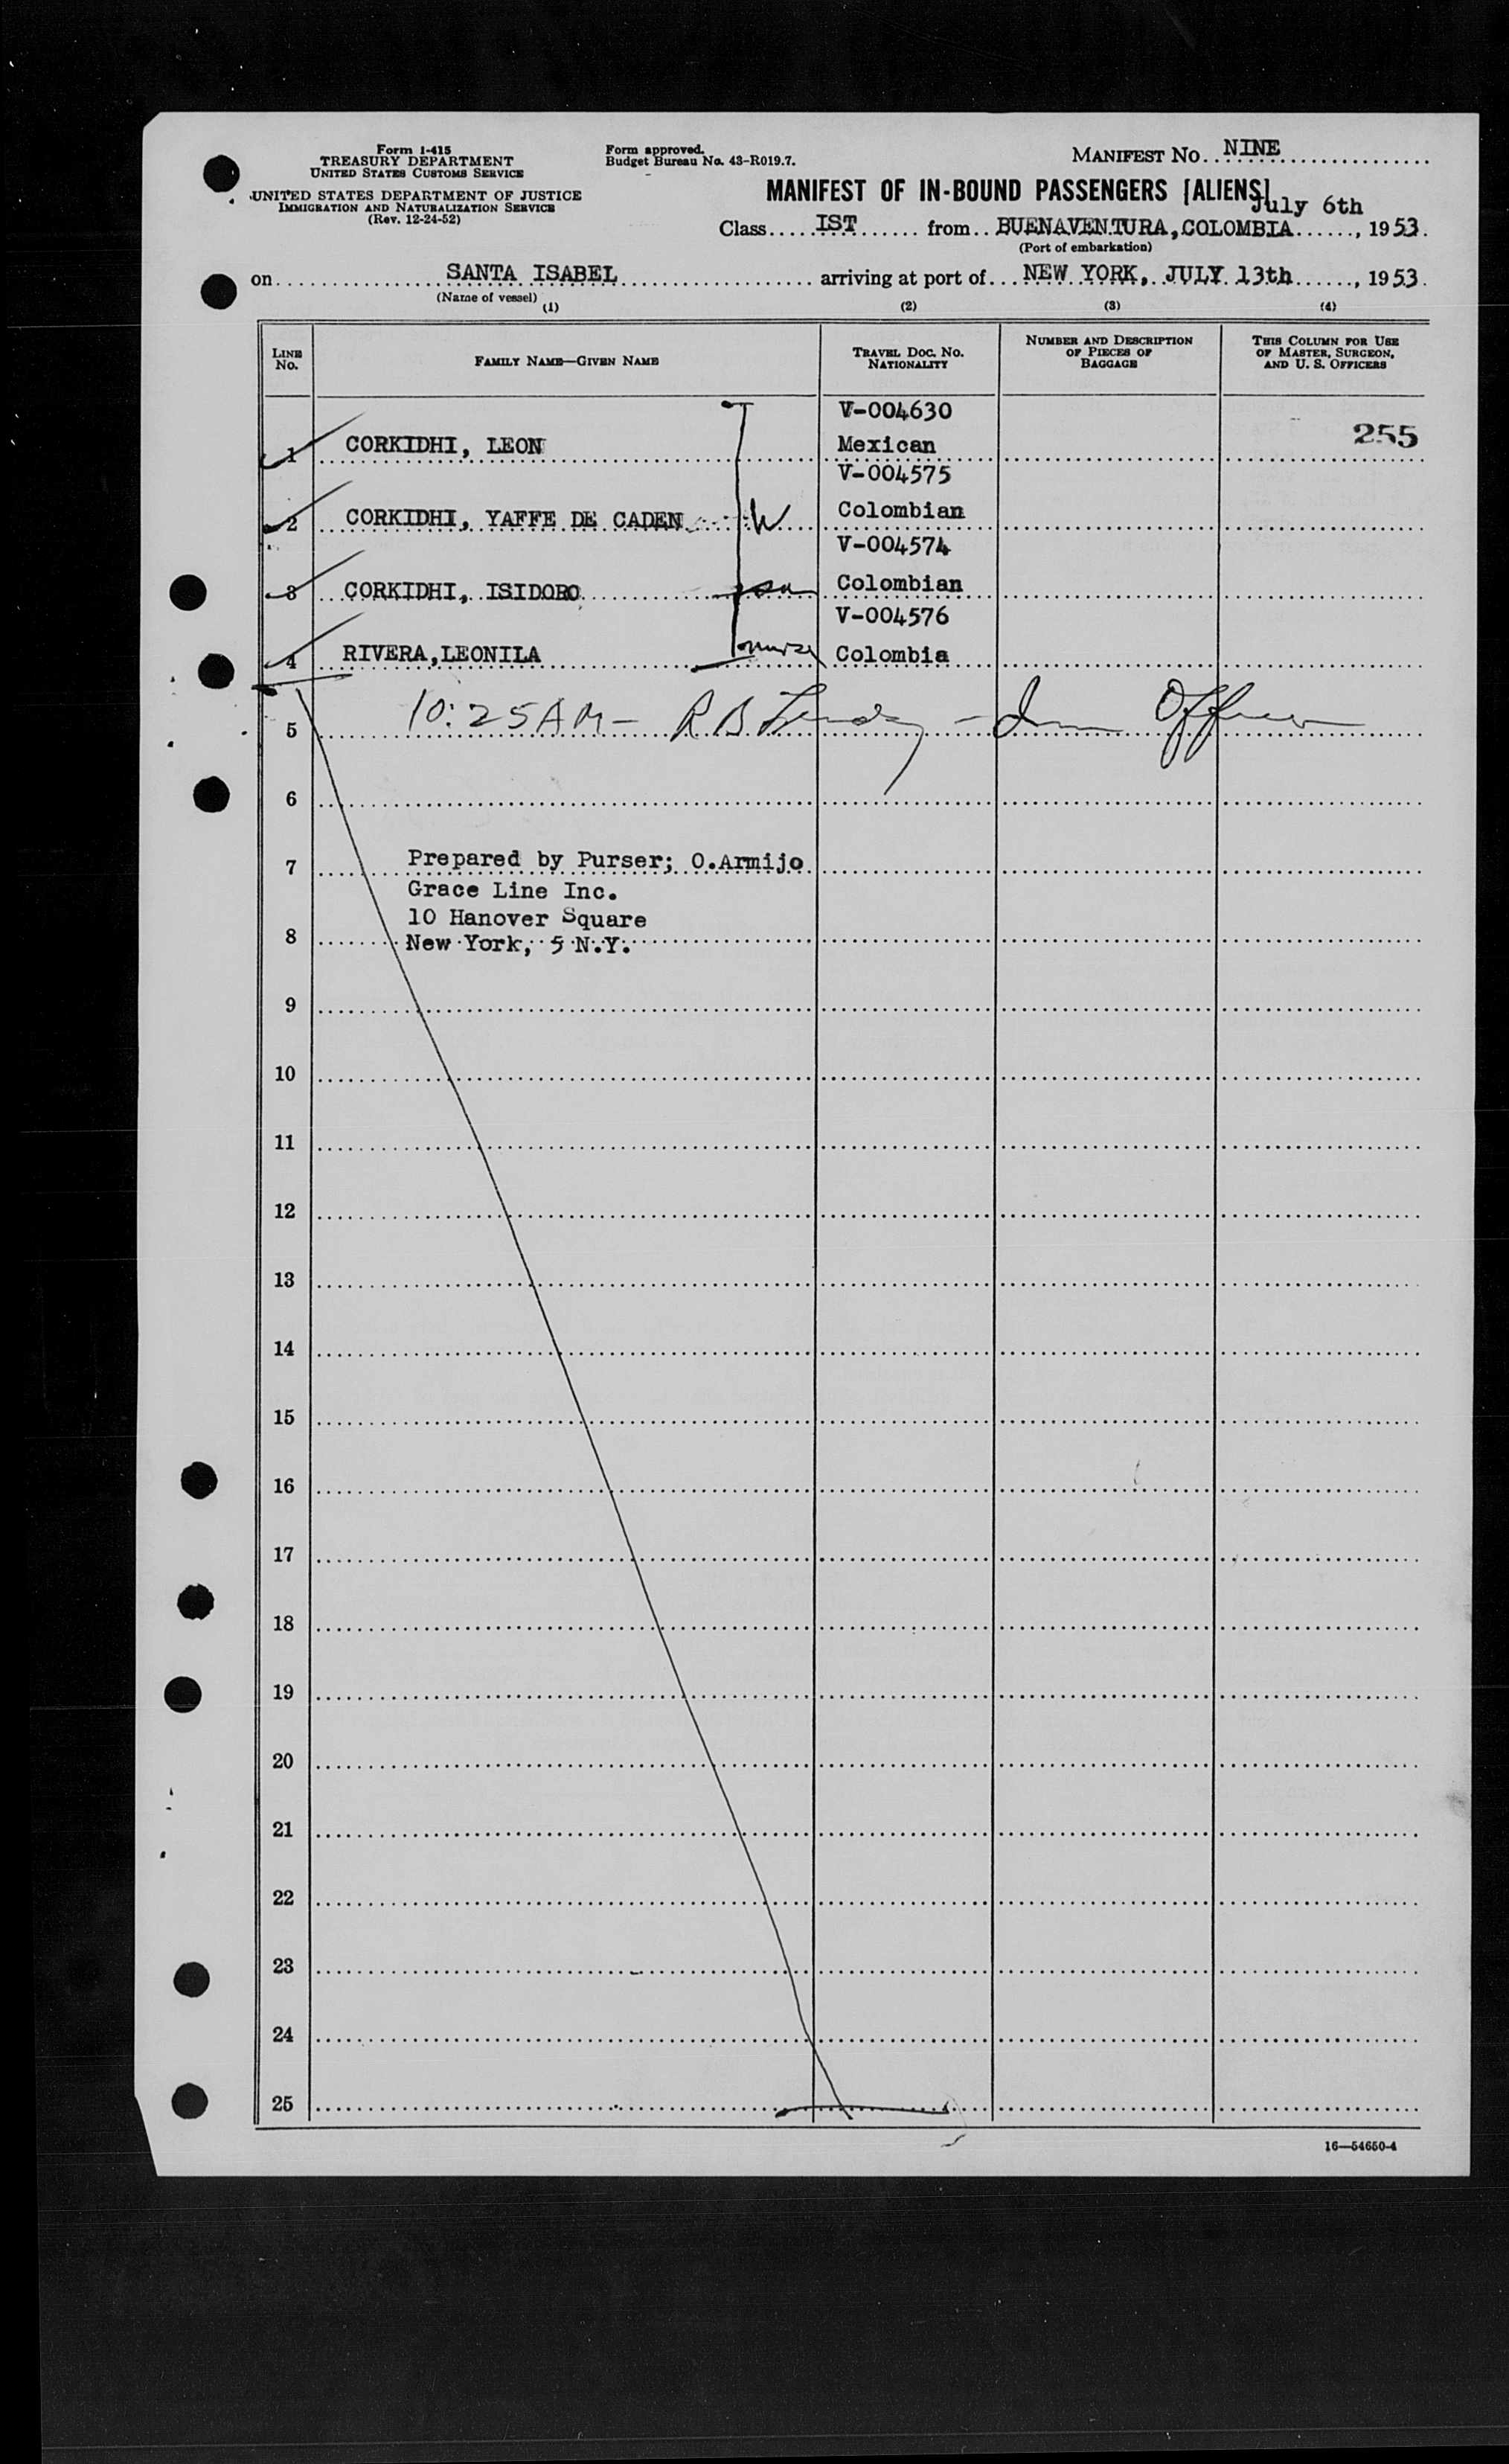 Form I-415
TREASURY DEPARTMENT
UNITED STATES CUSTOMS SERVICE
UNITED STATES DEPARTMENT OF JUSTICE
IMMIGRATION AND NATURALIZATION SERVICE
(Rev. 12-24-52)
Form approved.
Budget Bureau No. 43-R019.7.
MANIFEST NO. NINE
MANIFEST OF IN-BOUND PASSENGERS [ALIENS]
July 6th
Class IST from BUENAVENTURA, COLOMBIA, 1953.
(Port of embarkation)
on SANTA ISABEL arriving at port of NEW YORK, JULY 13th, 1953.
(Name of vessel)
(1) (2) (3) (4)
LINE NO. FAMILY NAME—GIVEN NAME TRAVEL DOC. NO. NATIONALITY NUMBER AND DESCRIPTION OF PIECES OF BAGGAGE THIS COLUMN FOR USE OF MASTER, SURGEON, AND U. S. OFFICERS
V-004630
1 CORKIDHI, LEON Mexican 255
V-004575
2 CORKIDHI, YAFFE DE CADEN W Colombian
V-004574
3 CORKIDHI, ISIDORO son Colombian
V-004576
4 RIVERA, LEONILA nurse Colombia
5 10:25AM - R B - Imm Officer
6
7 Prepared by Purser; O.Armijo
Grace Line Inc.
10 Hanover Square
8 New York, 5 N.Y.
9
10
11
12
13
14
15
16
17
18
19
20
21
22
23
24
25
16—54650-4